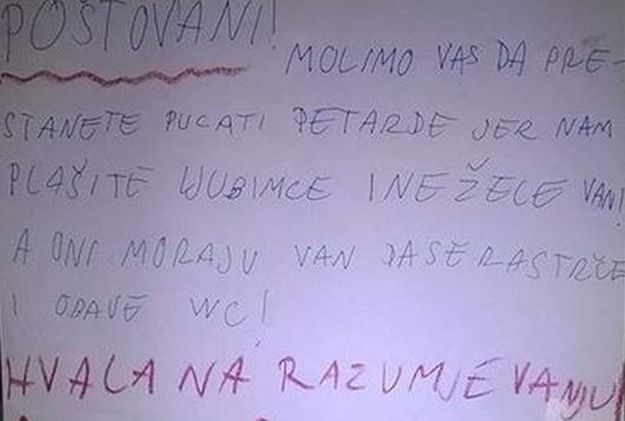 POŠTOVANI!
MOLIMO VAS DA PRE-
STANETE PUCATI PETARDE JER NAM
PLAŠITE LJUBIMCE I NE ŽELE VANI
A ONI MORAJU VAN DA SE RASTRČE
I OBAVE WC!
HVALA NA RAZUMJEVANJU